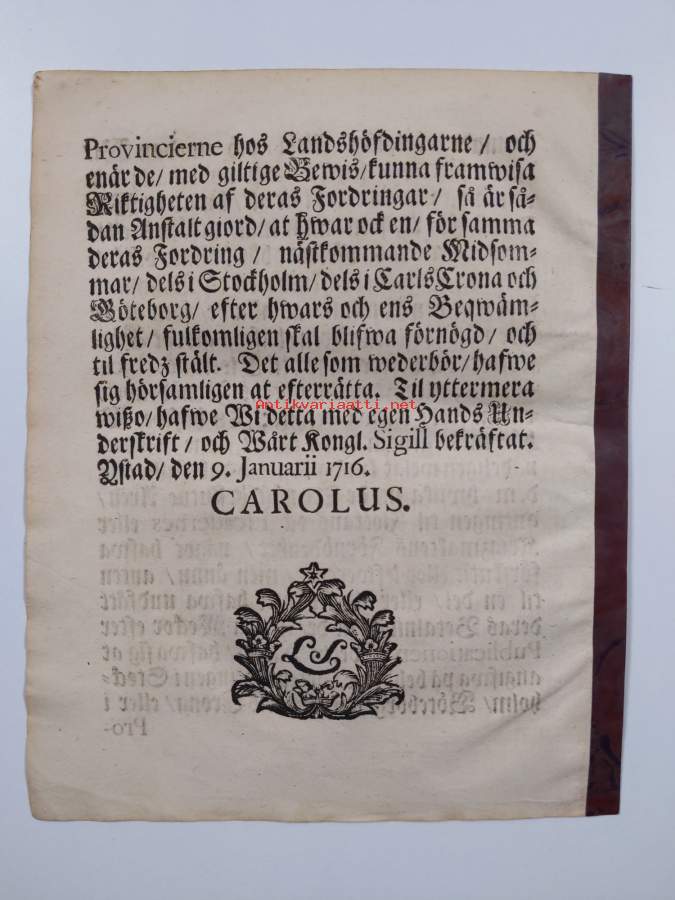 Provincierne hos Landshöfdingarne / och
enär de / med giltige Bewis / kunna framwisa
Riktigheten af deras Fordringar / så är så-
dan Anstalt giord / at hwar ock en / för samma
deras Fordring / nästkommande Midsom-
mar / dels i Stockholm / dels i CarlsCrona och
Göteborg / efter hwars och ens Beqwäm-
lighet / fulkomligen skal blifwa förnögd / och
til fredz stält. Det alle som wederbör / hafwe
sig hörsamligen at efterrätta. Til yttermera
wißo / hafwe Wi detta med egen Hands Un-
derskrift / och Wårt Kongl. Sigill bekräftat.
Ystad / den 9. Januarii 1716.
CAROLUS.
Antikvariaatti.net
LS